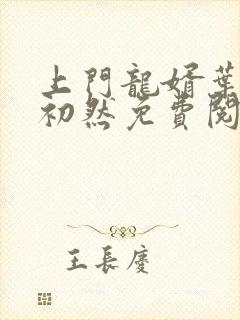 上門龍婿葉
初然免費閱
王長慶